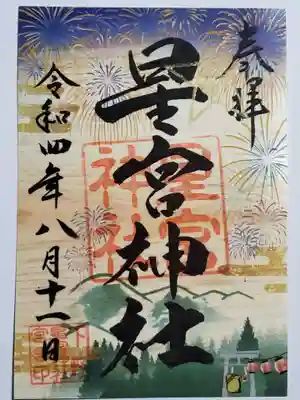 奉拝
星宮神社
令和四年八月十一日
星宮
神社